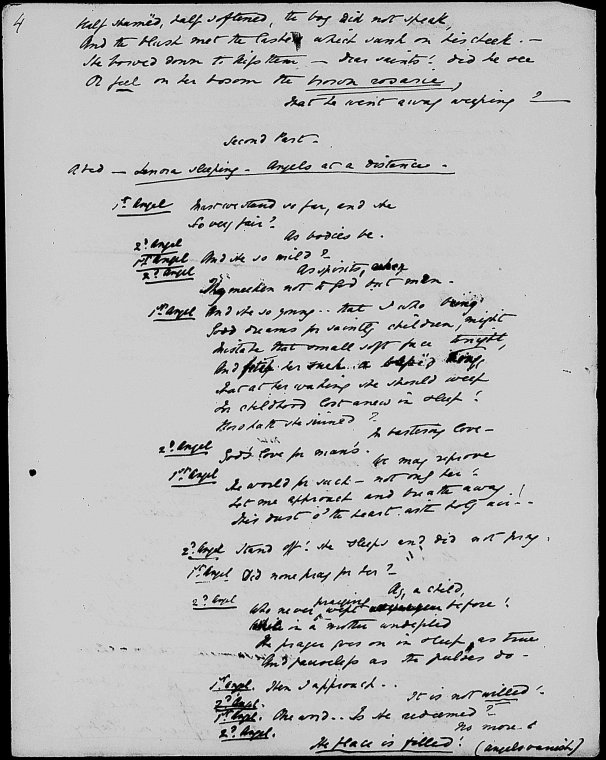 4
Half ashamëd, half softened, the boy did not speak,
And the blush met the lashes which sank on his cheek. —
She bowed down to kiss them — Dear saints! did he see
Or feel on her bosom the brown rosarie,
That he went away weeping? —
Second Part —
A bed — Lenora sleeping — Angels at a distance —
1st Angel Must we stand so far, and she
So very fair?
2d Angel As bodies be.
1st Angel And she so mild?
2d Angel As spirits, when
They meeken not to God but men.
1st Angel And she so young .. that I who bring
Good dreams for saintly children, might
Mistake that small soft face tonight,
And her such a blessëd thing,
That at her waking she should weep
For childhood lost anew in sleep!
How hath she sinned?
2d Angel In bartering love —
God's love for man's.
1st Angel We may reprove
The world for such — not only her!
Let me approach and breathe away
This dust o' the heart with holy air —
2d Angel Stand off! She sleeps and did not pray.
1st Angel Did none pray for her?
2d Angel Ay, a child,
Who never praying wept before!
While in a mother undefiled
The prayer goes on in sleep, as true
And pauseless as the pulses do —
1st Angel. Then I approach ..
2d Angel. It is not willed!
1st Angel. One word .. Is she redeemed?
2d Angel. No more!
The place is filled! (angels vanish)